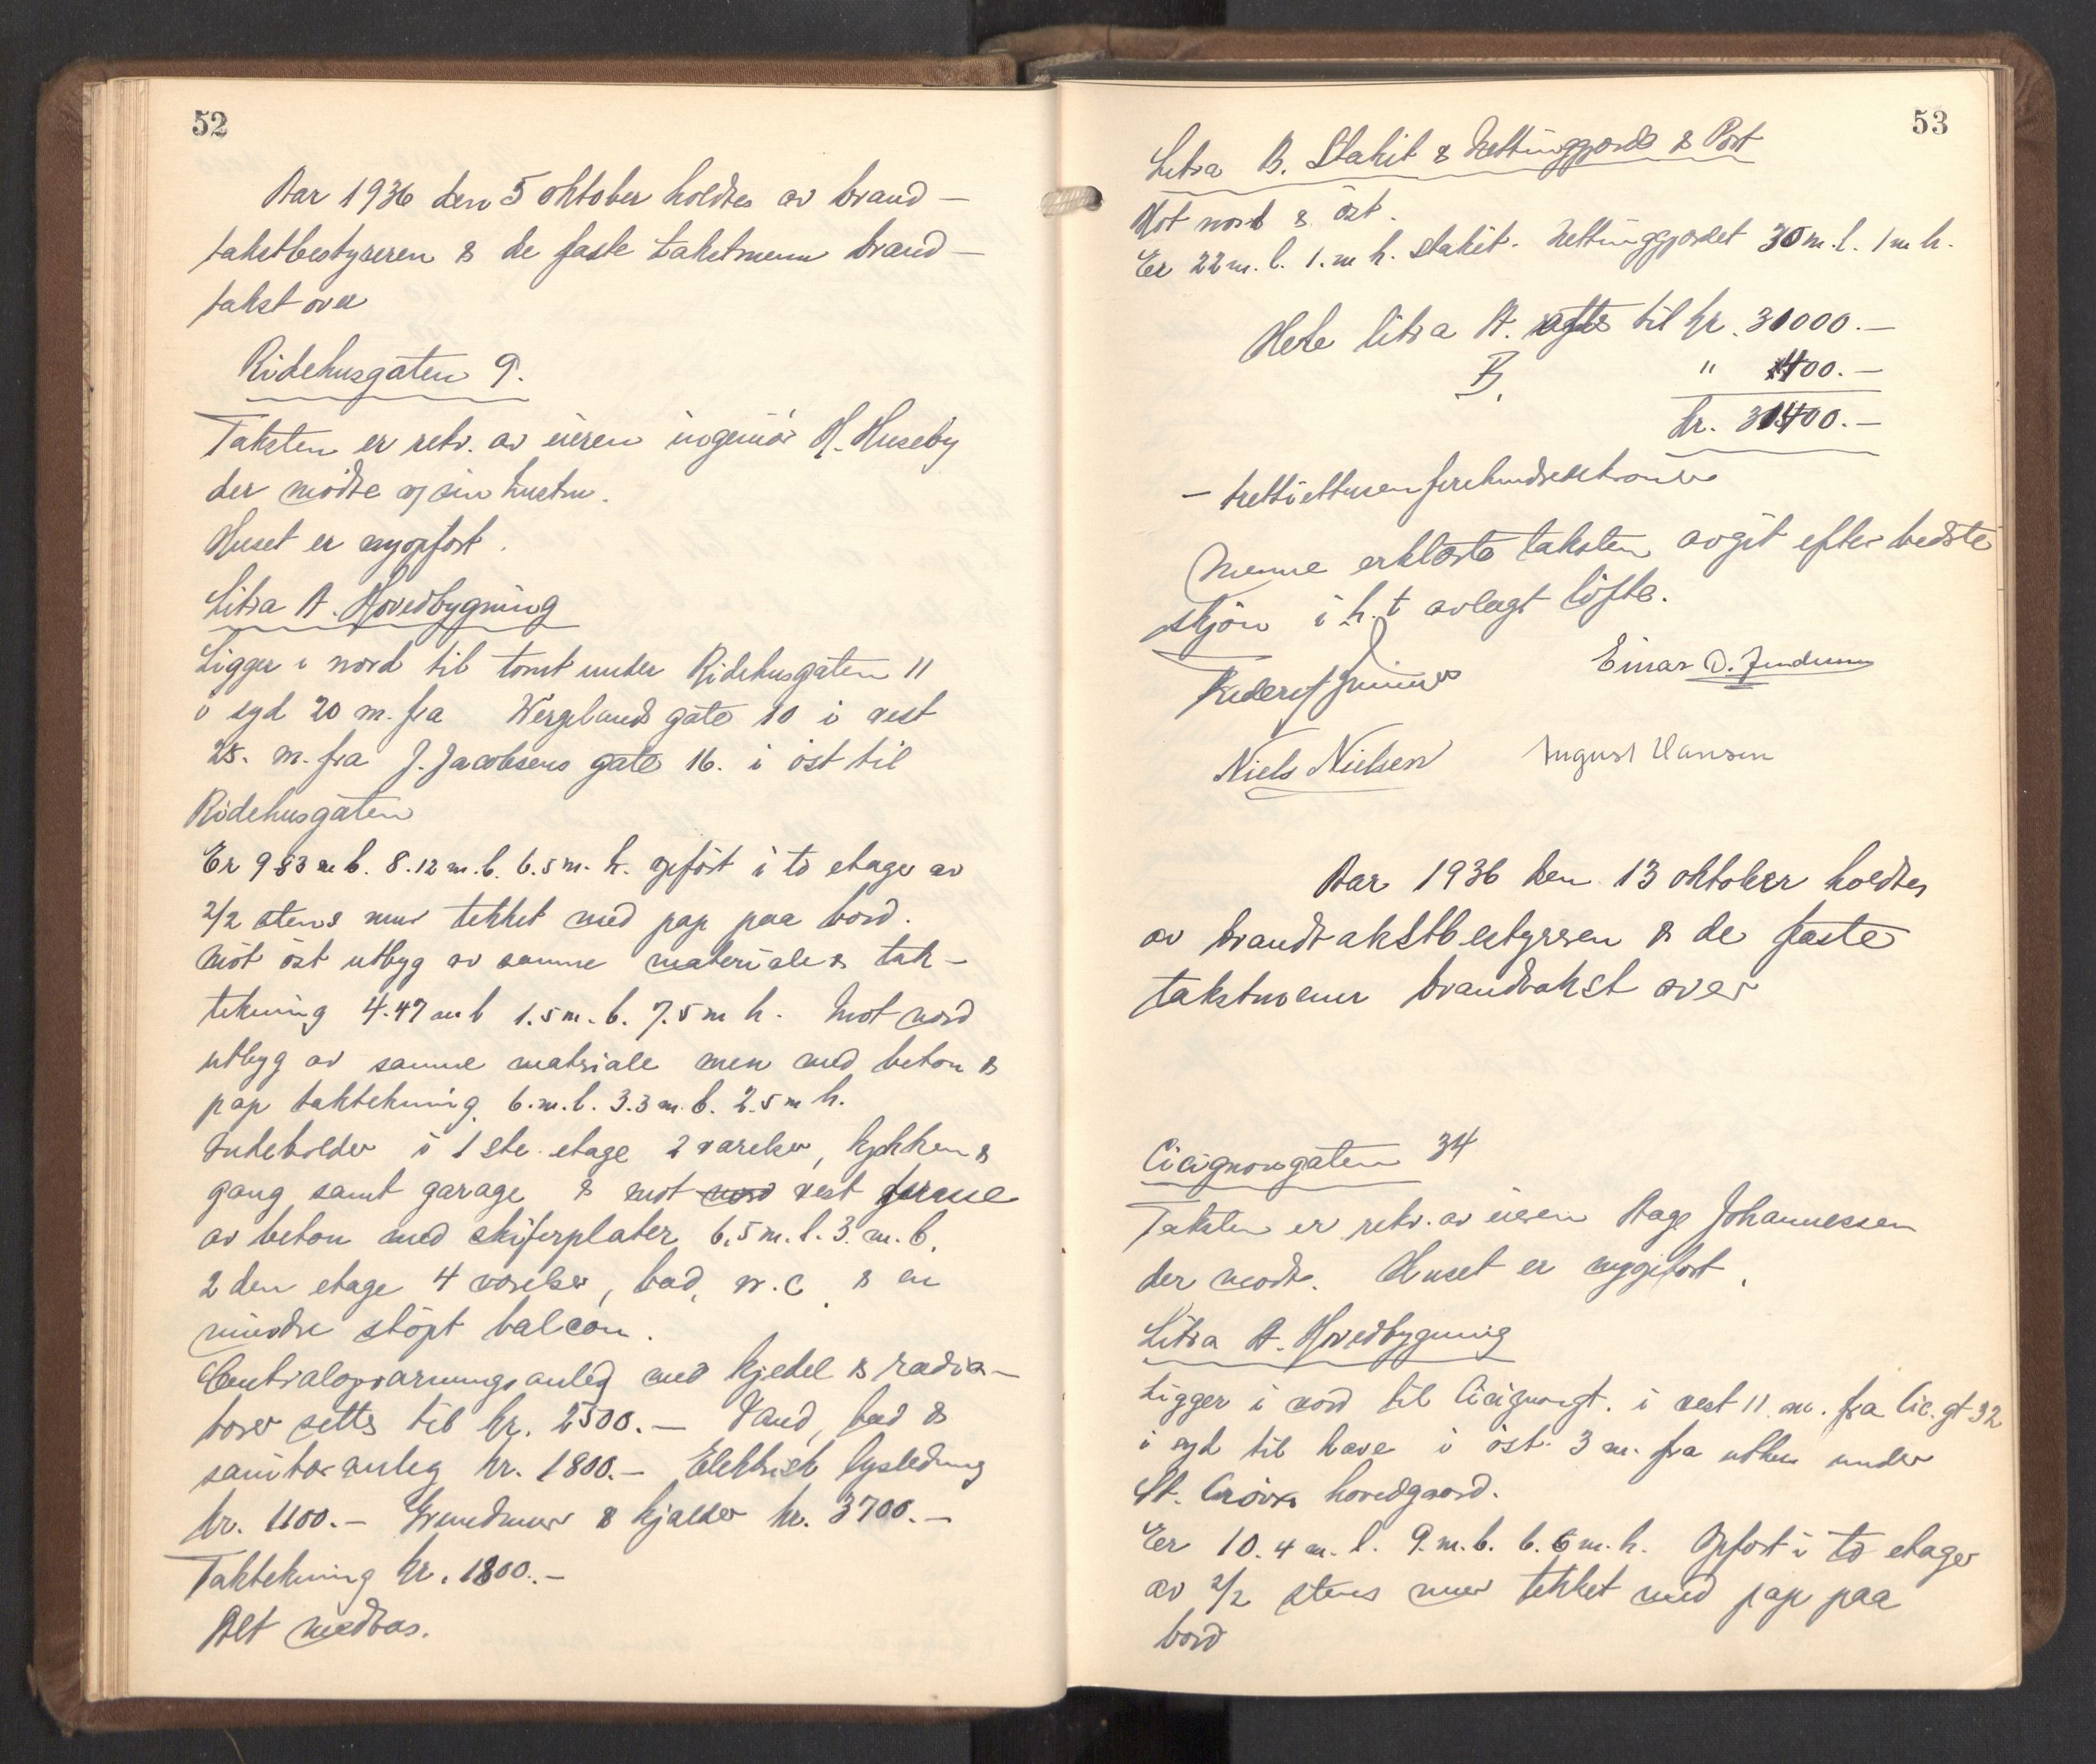 52
Aar 1936 den 5 oktober holdtes av brand-
takstbestyreren & de faste takstmenn brand-
takst over
Ridehusgaten 9.
Taksten er rekv. av eieren ingeniör H. Huseby
der mödte og sin hustru.
Huset er nyopfört.
Litra A. Hovedbygning
Ligger i nord til tomt under Ridehusgaten 11
i syd 20 m. fra Wergelands gate 10 i vest
25. m. fra J. Jacobsens gate 16. i öst til
Ridehusgaten
Er 9.83 m l. 8.12 m. b. 6.5 m. h. opfört i to etager av
2/2 stens mur tekket med pap paa bord.
Mot öst utbyg av samme materiale & tak-
tekning 4.47 m l 1.5 m. b. 7.5 m h. Mot nord
utbyg av samme matriale men med beton &
pap taktekning 6. m. l. 3.3 m. b. 2.5 m h.
Indeholder i 1ste etage 2 værelser, kjökken &
gang samt garage & mot nord vest terasse
av beton med skiferplater 6.5 m. l. 3. m. b.
2 den etage 4 værelser, bad, w.c. & en
mindre stöpt balcon.
Centralopvarmningsanleg med kjedel & radia-
torer settes til kr. 2500.- Vand, bad &
sanitæranleg kr. 1800.- Elektrisk lysledning
kr. 1100.- Grundmur & kjelder kr. 3700.-
Taktekning kr. 1800.-
Alt nedbras.
53
Litra B. Stakit & Nettinggjerde & Port
Mot nord & öst.
Er 22 m. l. 1. m h. stakit. Nettinggjerdet 30 m. l. 1 m h.
Hele litra A. settes til kr. 31000.-
B. " 400.-
kr. 31400.-
- trettiettusenfirehundredekroner
Menne erklærte taksten avgit efter bedste
skjön i h. t avlagt löfte.
Einar O. Gundersen
Niels Nielsen August Hansen
Aar 1936 den 13 oktober holdtes
av brandtakstbestyreren & de faste
takstmenn brandtakst over
Cicignongaten 34
Taksten er rekv. av eieren Aage Johannessen
der mödte. Huset er nyopfört.
Litra A. Hovedbygning
Ligger i nord til Cicignongt. i vest 11 m. fra Cic. gt 32
i syd til have i öst 3 m. fra uthus under
St. Croix hovedgaard.
Er 10.4 m. l. 9. m. b. 6.6 m. h. Opfört i to etager
av 2/2 stens mur tekket med pap paa
bord